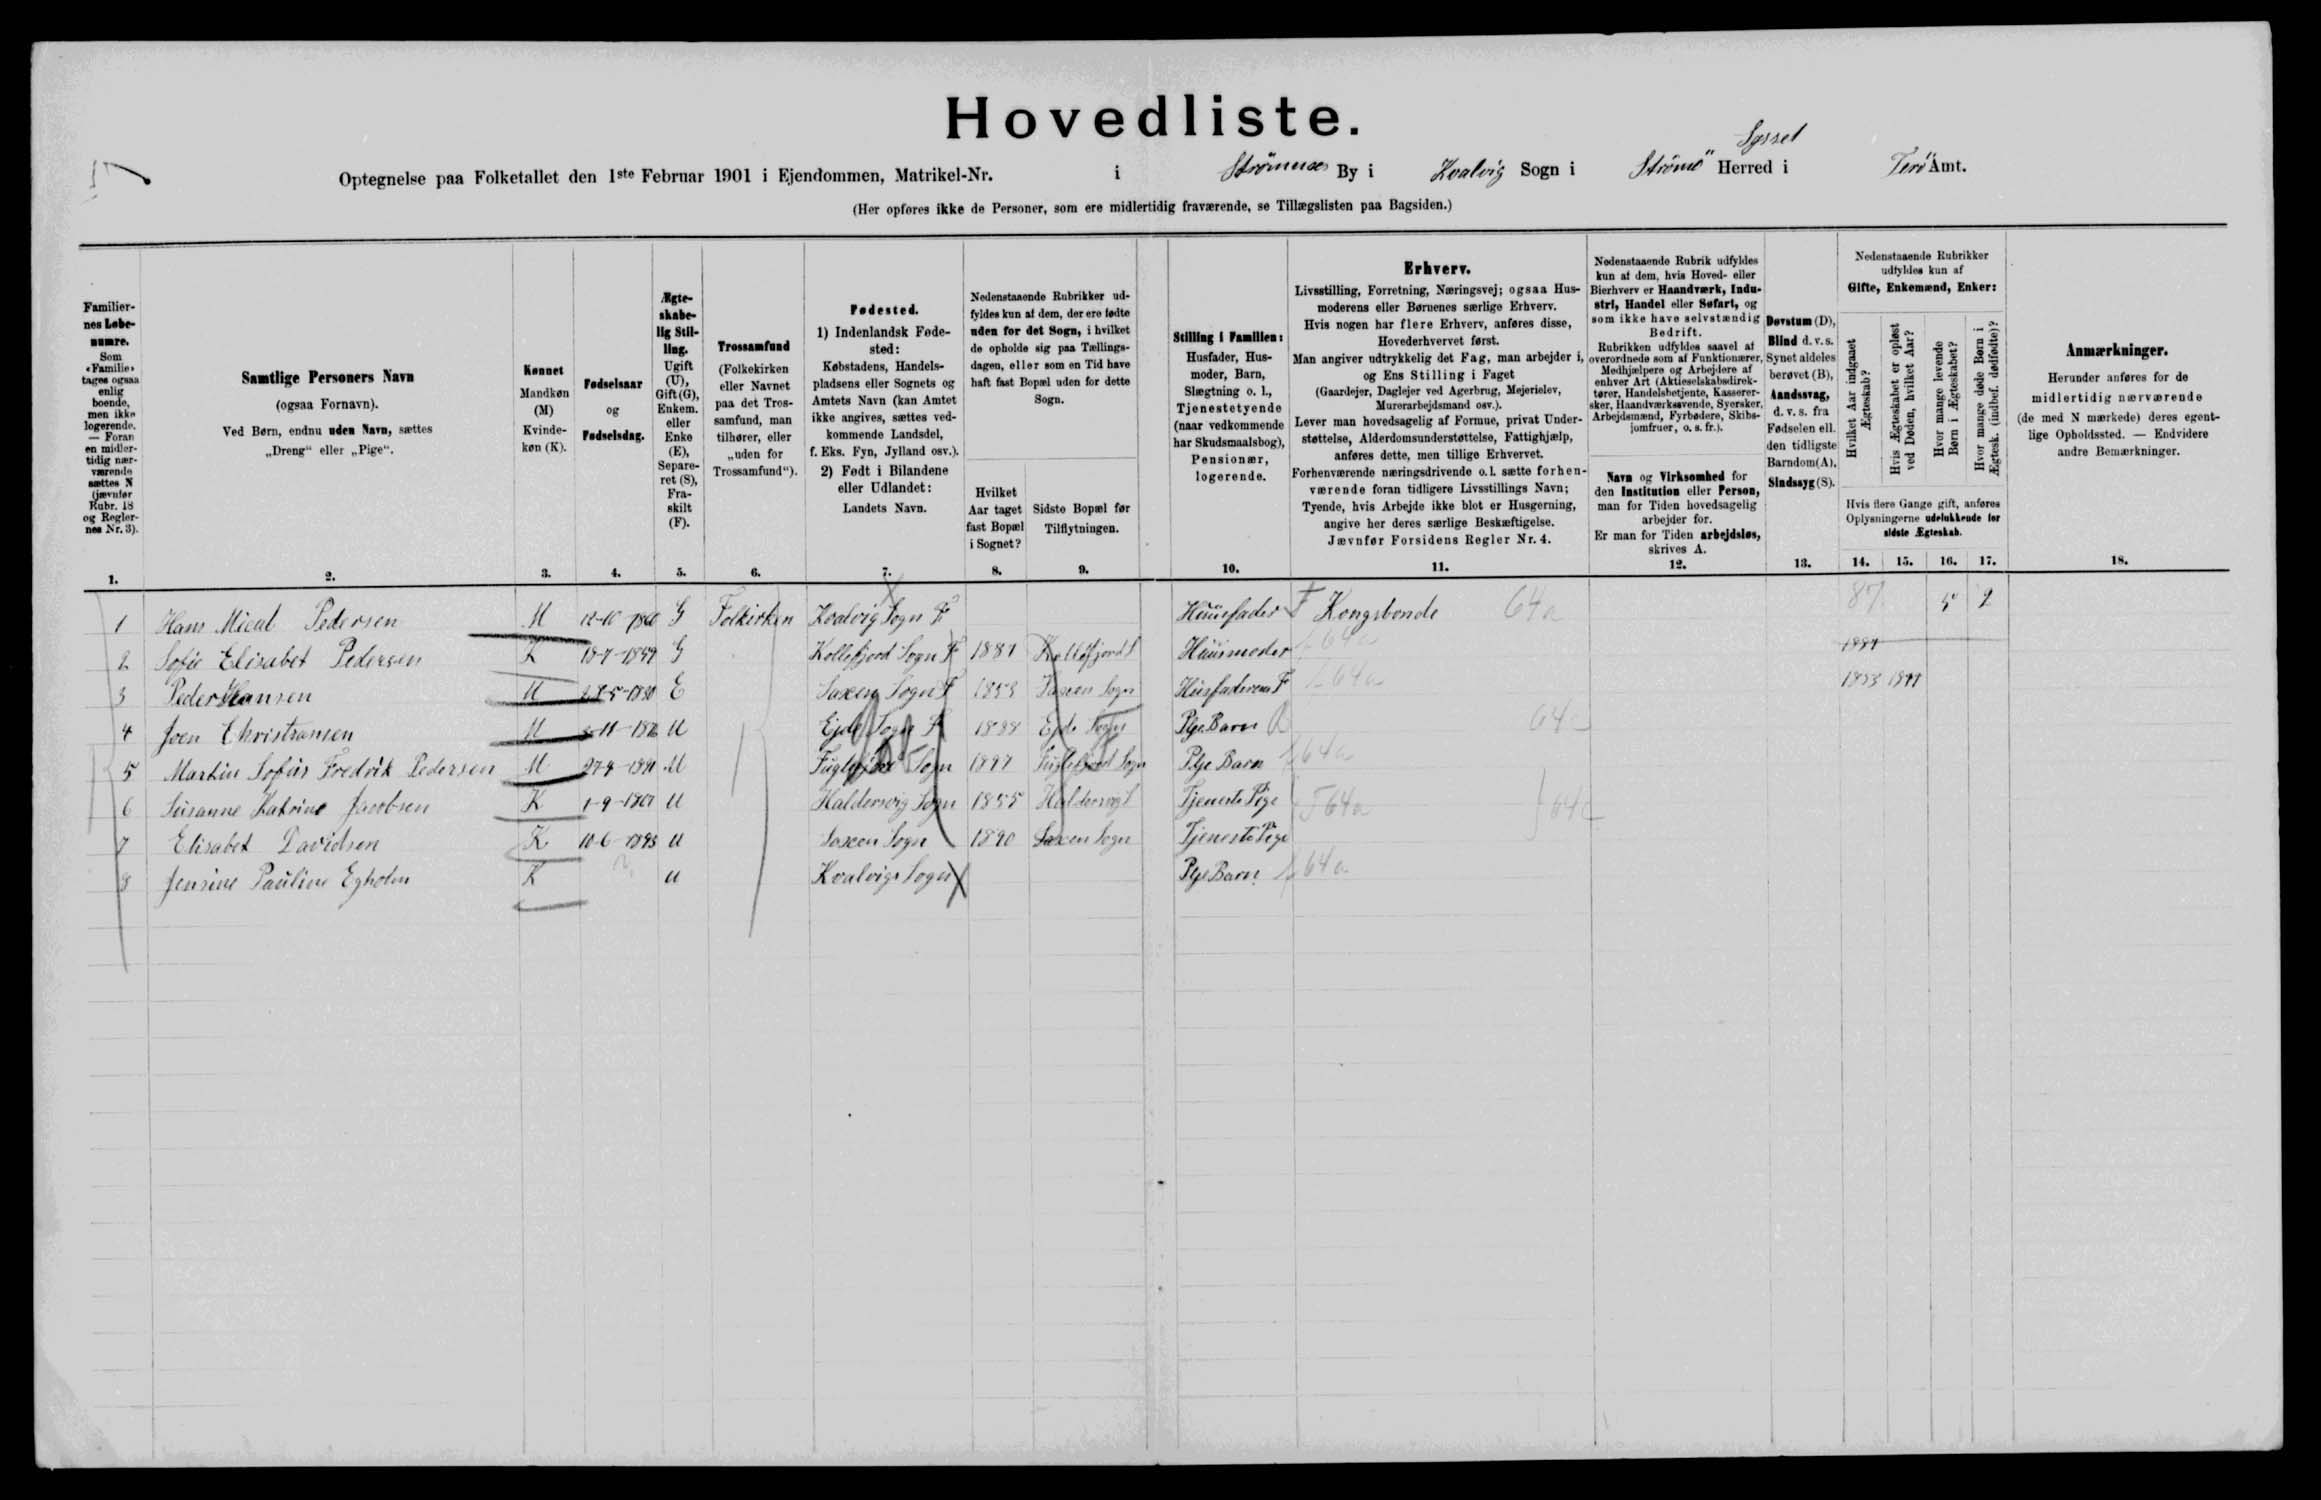 Hovedliste.
Optegnelse paa Folketallet den 1ste Februar 1901 i Ejendommen, Matrikel-Nr. i Strömnæs By i Kvalvig Sogn i Strömö Herred i Ferö Amt.
Syssel
(Her opføres ikke de Personer, som ere midlertidig fraværende, se Tillægslisten paa Bagsiden.)
Familiernes Løbenumre.
Som «Familie» tages ogsaa enlig boende, men ikke logerende. — Foran en midlertidig nærværende sættes N (jævnfør Rubr. 18 og Reglernes Nr. 3).
Samtlige Personers Navn
(ogsaa Fornavn).
Ved Børn, endnu uden Navn, sættes
„Dreng“ eller „Pige“.
Kønnet
Mandkøn (M)
Kvindekøn (K).
Fødselsaar
og
Fødselsdag.
Ægteskabelig Stilling.
Ugift (U), Gift (G), Enkem. eller Enke (E), Separeret (S), Fraskilt (F).
Trossamfund
(Folkekirken eller Navnet paa det Trossamfund, man tilhører, eller „uden for Trossamfund“).
Fødested.
1) Indenlandsk Fødested:
Købstadens, Handelspladsens eller Sognets og Amtets Navn (kan Amtet ikke angives, sættes vedkommende Landsdel, f. Eks. Fyn, Jylland osv.).
2) Født i Bilandene eller Udlandet:
Landets Navn.
Nedenstaaende Rubrikker udfyldes kun af dem, der ere fødte uden for det Sogn, i hvilket de opholde sig paa Tællingsdagen, eller som en Tid have haft fast Bopæl uden for dette Sogn.
Hvilket Aar taget fast Bopæl i Sognet?
Sidste Bopæl før Tilflytningen.
Stilling i Familien:
Husfader, Husmoder, Barn, Slægtning o. l., Tjenestetyende (naar vedkommende har Skudsmaalsbog), Pensionær, logerende.
Erhverv.
Livsstilling, Forretning, Næringsvej; ogsaa Husmoderens eller Børnenes særlige Erhverv.
Hvis nogen har flere Erhverv, anføres disse, Hovederhvervet først.
Man angiver udtrykkelig det Fag, man arbejder i, og Ens Stilling i Faget
(Gaardejer, Daglejer ved Agerbrug, Mejerielev, Murerarbejdsmand osv.).
Lever man hovedsagelig af Formue, privat Understøttelse, Alderdomsunderstøttelse, Fattighjælp, anføres dette, men tillige Erhvervet.
Forhenværende næringsdrivende o. l. sætte forhenværende foran tidligere Livsstillings Navn;
Tyende, hvis Arbejde ikke blot er Husgerning, angive her deres særlige Beskæftigelse.
Jævnfør Forsidens Regler Nr. 4.
Nedenstaaende Rubrik udfyldes kun af dem, hvis Hoved- eller Bierhverv er Haandværk, Industri, Handel eller Søfart, og som ikke have selvstændig Bedrift.
Rubrikken udfyldes saavel af overordnede som af Funktionærer, Medhjælpere og Arbejdere af enhver Art (Aktieselskabsdirektører, Handelsbetjente, Kasserersker, Haandværkssvende, Syersker, Arbejdsmænd, Fyrbødere, Skibsjomfruer, o. s. fr.).
Navn og Virksomhed for den Institution eller Person, man for Tiden hovedsagelig arbejder for.
Er man for Tiden arbejdsløs, skrives A.
Døvstum (D), Blind d. v. s. Synet aldeles berøvet (B), Aandssvag, d. v. s. fra Fødselen ell. den tidligste Barndom (A), Sindssyg (S).
Nedenstaaende Rubrikker udfyldes kun af
Gifte, Enkemænd, Enker:
Hvilket Aar indgaaet Ægteskab?
Hvis Ægteskabet er opløst ved Døden, hvilket Aar?
Hvor mange levende Børn i Ægteskabet?
Hvor mange døde Børn i Ægtesk. (indbef. dødfødte)?
Hvis flere Gange gift, anføres Oplysningerne udelukkende for sidste Ægteskab.
Anmærkninger.
Herunder anføres for de midlertidig nærværende (de med N mærkede) deres egentlige Opholdssted. — Endvidere andre Bemærkninger.
1. 2. 3. 4. 5. 6. 7. 8. 9. 10. 11. 12. 13. 14. 15. 16. 17. 18.
1 Hans Mical Pedersen M 12-10-1860 G Folkirken Kvalvig Sogn F Huusfader F Kongsbonde 64a 87 5 2
2 Sofie Elisabet Pedersen K 18-7-1859 G Kollefjord Sogn F 1887 Kollefjord S Huusmoder 64a 1887
3 Peder Hansen M E Saxen Sogn F 1853 Saxen Sogn Husfaderens F 64a 1853 1899
4 Joen Christiansen M U Ejde Sogn F 1888 Ejde Sogn PlejeBarn 64c
5 Martin Sofus Fredrik Pedersen M U Sogn 1897 Sogn Pleje Barn 64a
6 Susanne Katrine Jacobsen K 1-9-1801 U Haldersvig Sogn 1855 Haldersvig S Tjeneste Pige F 64a 64c
7 Elisabet Davidsen K 10-6-1893 U Saxen Sogn 1890 Saxen Sogn Tjeneste Pige
8 Jensine Pauline Egholm K ? U Kvalvigs Sogn PlejeBarn 64a